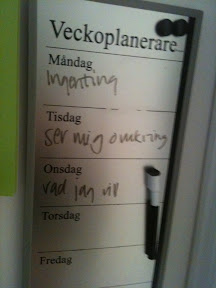 Veckoplanerare
Måndag
Ingenting
Tisdag
ser mig omkring
Onsdag
vad jag vill
Torsdag
Fredag